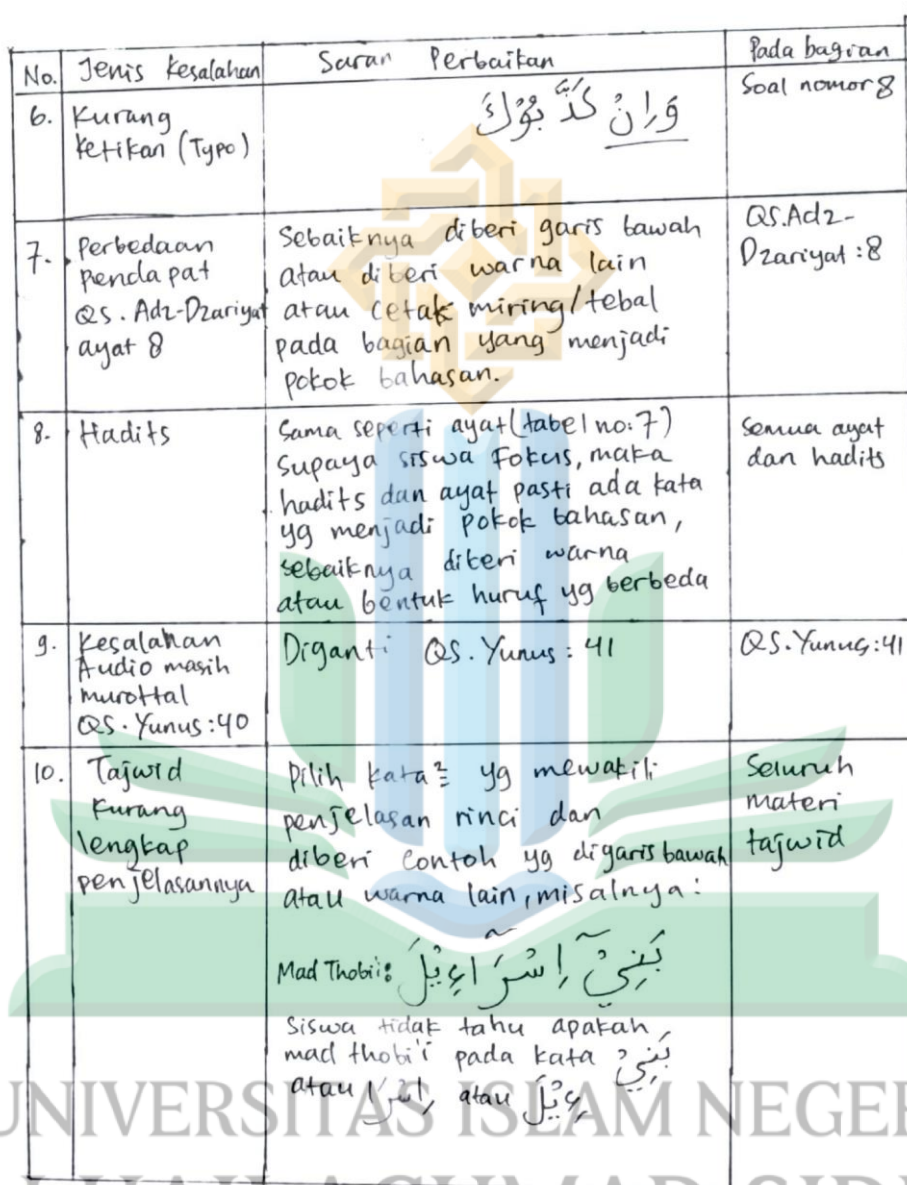 No. Jenis Kesalahan Saran Perbaikan Pada bagian
6. Kurang ketikan (Typo)
وَاِنْ كَذَّبُوْكَ
Soal nomor 8
7. Perbedaan
Pendapat
QS. Adz-Dzariyat
ayat 8
Sebaiknya diberi garis bawah
atau diberi warna lain
atau cetak miring/tebal
pada bagian yang menjadi
pokok bahasan.
QS.Adz-
Dzariyat :8
8. Hadits
Sama seperti ayat (tabel no:7)
Supaya siswa Fokus, maka
hadits dan ayat pasti ada kata
yg menjadi pokok bahasan,
sebaiknya diberi warna
atau bentuk huruf yg berbeda
Semua ayat
dan hadits
9. Kesalahan
Audio masih
murottal
QS. Yunus :40
Diganti QS. Yunus : 41
QS. Yunus :41
10. Tajwid
Kurang
lengkap
penjelasannya
Pilih kata² yg mewakili
penjelasan rinci dan
diberi contoh yg digaris bawah
atau warna lain, misalnya:
Mad Thobi'i: بَنِيْٓ اِسْرَآءِيْلَ
siswa tidak tahu apakah
mad thobi'i pada kata بَنِيْ
atau اِسْرَا atau ءِيْلَ
Seluruh
materi
tajwid
UNIVERSITAS ISLAM NEGER